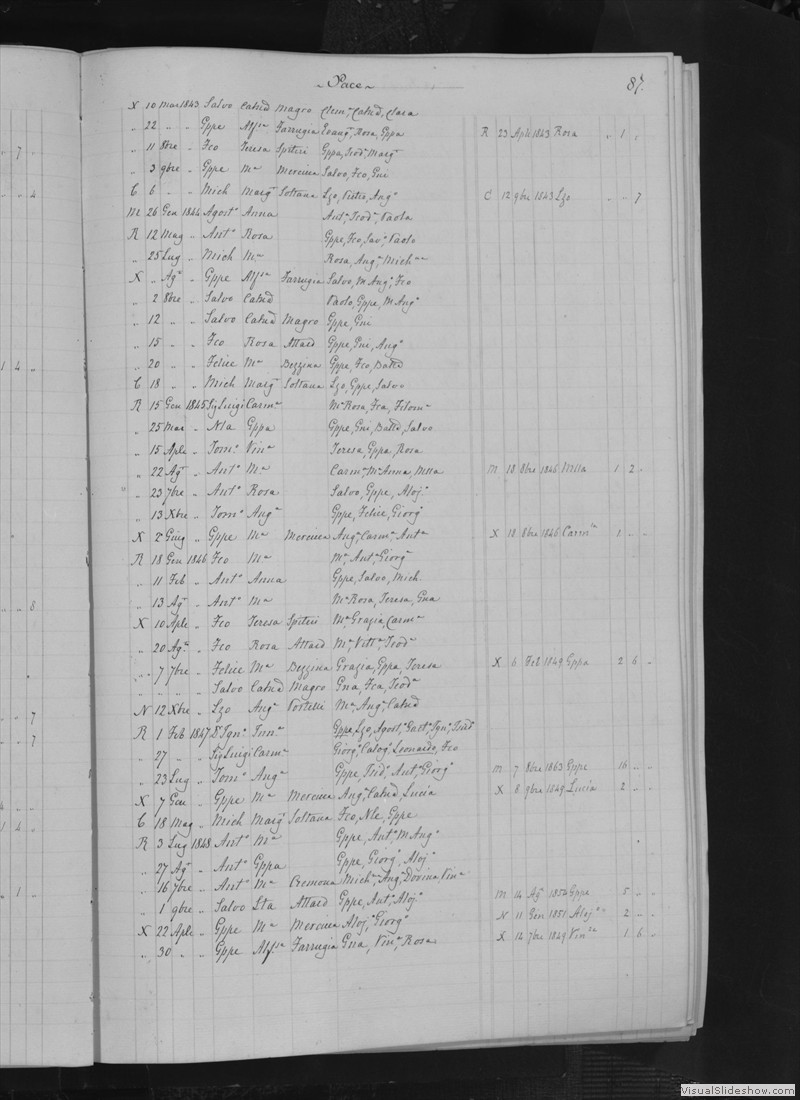 ~ Pace ~ 87.
X 10 Mar 1843 Salvo Catnd Magro Clem^a, Catnd, Clara
„ 22 „ „ Gppe Alf^sa Farrugia Evang^a, Rosa, Gppa R 23 Aple 1843 Rosa „ 1 „
„ 11 8bre „ Fco Teresa Spiteri Gppa, Teod^a, Marg^a
„ 3 9bre „ Gppe M^a Mercieca Salvo, Fco, Gni
C 6 „ „ Mich Marg^a Soltana Lzo, Pietro, Ang^o C 12 9bre 1843 Lzo „ „ 7
M 26 Gen 1844 Agost^o Anna Ant^o, Teod^o, Paola
R 12 Mag „ Ant^o Rosa Gppe, Fco, Sav^o, Paolo
„ 25 Lug „ Mich M^a Rosa, Ang^a, Mich^na
X „ Ag^o „ Gppe Alf^sa Farrugia Salvo, M Ang^o, Fco
„ 2 8bre „ Salvo Catnd Paolo, Gppe, M Ang^o
„ 12 „ „ Salvo Catnd Magro Gppe, Gni
„ 15 „ „ Fco Rosa Attard Gppe, Gni, Ang^o
„ 20 „ „ Felice M^a Bezzina Gppe, Fco, Batta
C 18 „ „ Mich Marg^a Soltana Lzo, Gppe, Salvo
R 15 Gen 1845 Sig Luigi Carm^a M^a Rosa, Fca, Filom^a
„ 25 Mar „ Nla Gppa Gppe, Gni, Batta, Salvo
„ 15 Aple „ Tom^o Vin^a Teresa, Gppa, Rosa
„ 22 Ag^o „ Ant^o M^a Carm^a, M^a Anna, M 18 8bre 1846 1 2 „
„ 23 7bre „ Ant^o Rosa Salvo, Gppe, Aloj^o
„ 13 Xbre „ Tom^o Ang^a Gppe, Felice, Giorg^o
X 2 Giug „ Gppe M^a Mercieca Ang^a, Carm^a, Ant^a X 18 8bre 1846 Carm^la 1 „ „
R 18 Gen 1846 Fco M^a M^a, Ant^o, Giorg^o
„ 11 Feb „ Ant^o Anna Gppe, Salvo, Mich.
„ 13 Ag^o „ Ant^o M^a M^a Rosa, Teresa, Gna
X 10 Aple „ Fco Teresa Spiteri M^a Grazia, Carm^a
„ 20 Ag^o „ Fco Rosa Attard M^a, Vitt^a, Teod^a
„ 7 7bre „ Felice M^a Bezzina Grazia, Gppa, Teresa X 6 Feb 1849 Gppa 2 6 „
„ „ „ „ Salvo Catnd Magro Gna, Fca, Teod^a
N 12 Xbre „ Lzo Ang^a Portelli M^a, Ang^a, Catnd
R 1 Feb 1847 Dr Ign^o Gppe, Lzo, Agost^o, Gaet^o, Ign^o, Teod^o
„ 27 „ „ Sig Luigi Carm^a Giorg^o, Calog^o, Leonardo, Fco
„ 23 Lug „ Tom^o Ang^a Gppe, Teod^o, Ant^o, Giorg^o M 7 8bre 1863 Gppe 16 „ „
X 7 Gen „ Gppe M^a Mercieca Ang^a, Catnd, Lucia X 8 9bre 1849 Lucia 2 „ „
C 18 Mag „ Mich Marg^a Soltana Fco, Nla, Gppe
R 3 Lug 1848 Ant^o M^a Gppe, Ant^o, M Ang^o
„ 27 Ag^o „ Ant^o Gppa Gppe, Giorg^o, Aloj^o
„ 16 7bre „ Ant^o M^a Cremona Mich^a, Ang^a, Dorina, Vin^a
„ 1 9bre „ Salvo Sta Attard Gppe, Ant^o, Aloj^o M 14 Ag^o 1854 Gppe 5 „ „
X 22 Aple „ Gppe M^a Mercieca Aloj^o, Giorg^o N 11 Gen 1851 Aloj^o 2 „ „
„ 30 „ „ Gppe Alf^sa Farrugia Gna, Vin^a, Rosa X 12 7bre 1849 Vin^za 1 6 „
7
4
1 4
8
7
7
4
1 4
1
VisualSlideshow.com